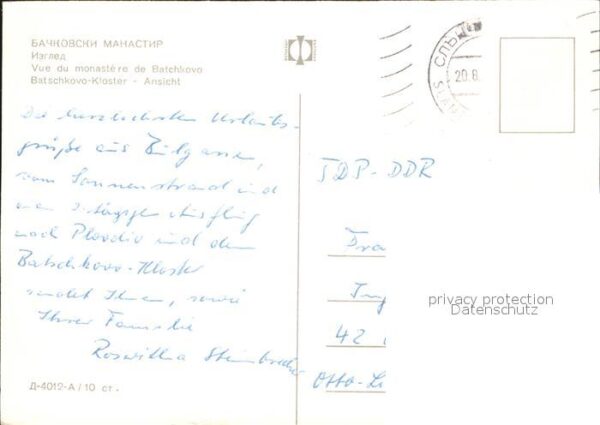 БАЧКОВСКИ МАНАСТИР
Изглед
Vue du monastère de Batchkovo
Batschkovo-Kloster - Ansicht
Die herzlichsten Urlaubs-
grüße aus Bulgarien,
vom Sonnenstrand und
2-tägige Ausflug
nach Plovdiv und dem
Batschkovo-Kloster
sendet Ihnen, sowie
Ihrer Familie
Roswitha
Д-4012-А / 10 ст.
СЛЪН
20.8.
SLAN
ГДР-DDR
Fra
42
Otto-
privacy protection
Datenschutz